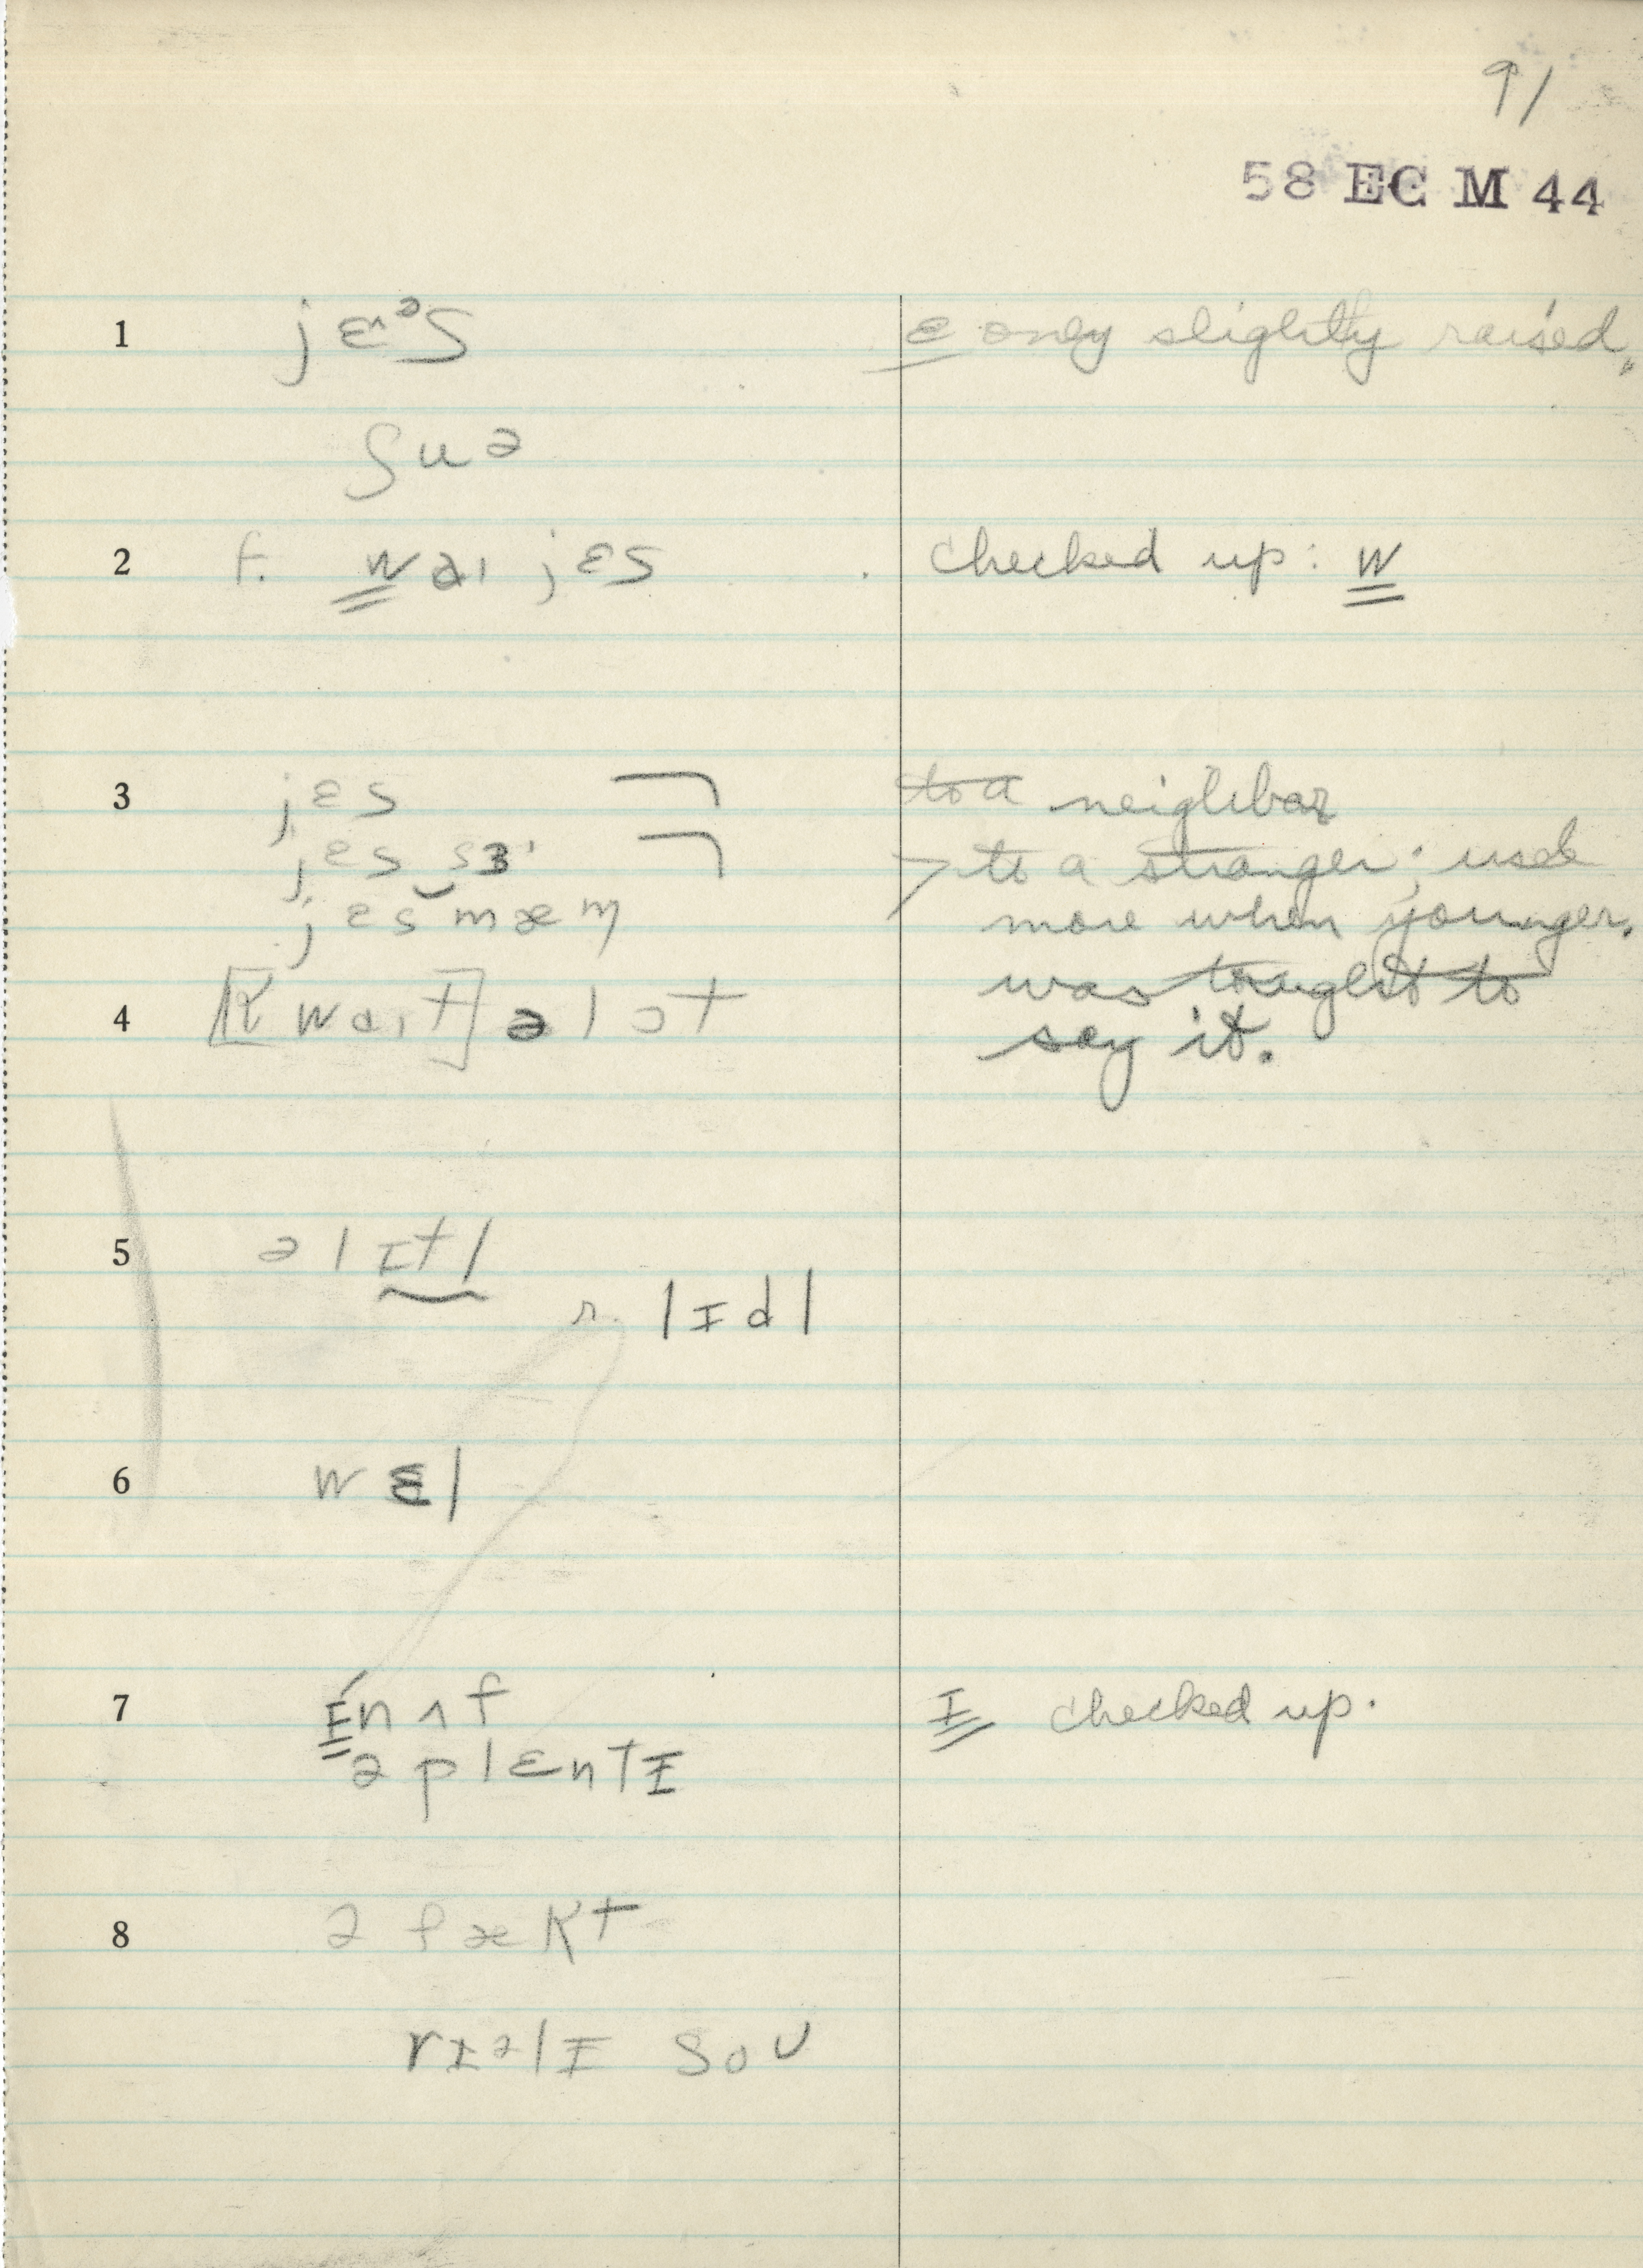 91
58 EC M 44
1 jɛ˄ᵊs ɛ only slightly raised.
ʃuə
2 f. waɪ jɛs checked up: w
3 jɛs to a neighbor
jɛs sɜ > to a stranger; used
jɛs mæm more when younger.
was taught to
4 [kwaɪt] ə lɔt say it.
5 ə lɪtl
r. lɪdl
6 wɛl
7 ɪnʌf ɪ checked up.
ə plɛntɪ
8 ə fækt
rɪəlɪ soʊ